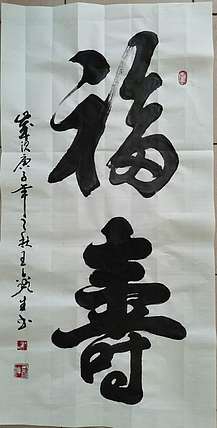 福寿
岁次庚子年之秋王
生书